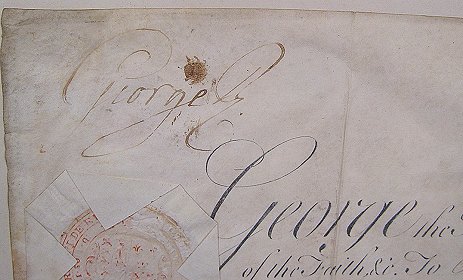 George R
George the
of the Faith &c. To